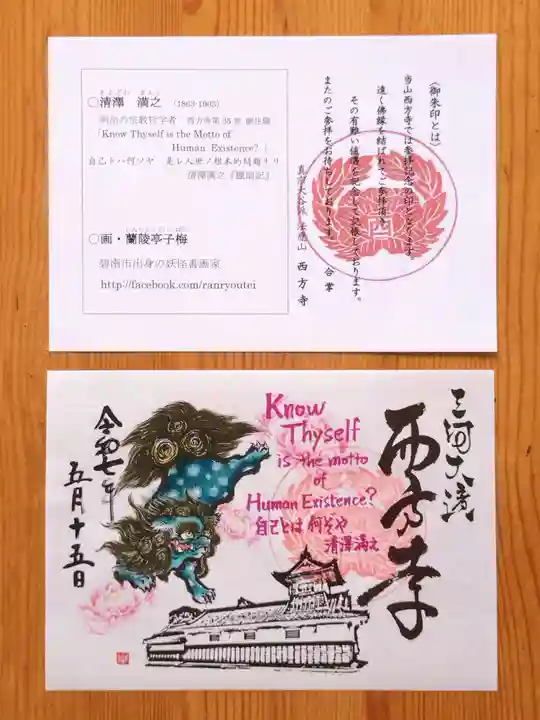 ◯清澤　満之　(1863-1903)
明治の宗教哲学者　西方寺第
「Know Thyself is the Motto of
Human Existence?」
自己トハ何ゾヤ　是レ人世ノ根本的問題ナリ
清澤満之『臘扇記』
◯画・蘭陵亭子梅
碧南市出身の妖怪書画家
http://facebook.com/ranryoutei
《御朱印とは》
当山西方寺では参拝記念の印となります。
遠く佛縁を結ばれてご参拝頂き
その有難い値遇を記念して記帳しております。
またのご参拝をお待ちしております。
合掌
真宗大谷派
西方寺
西
三河大濱
西方寺
Know
Thyself
is the motto
of
Human Existence?
自己とは何ぞや
清澤満之
令和七年
五月十五日